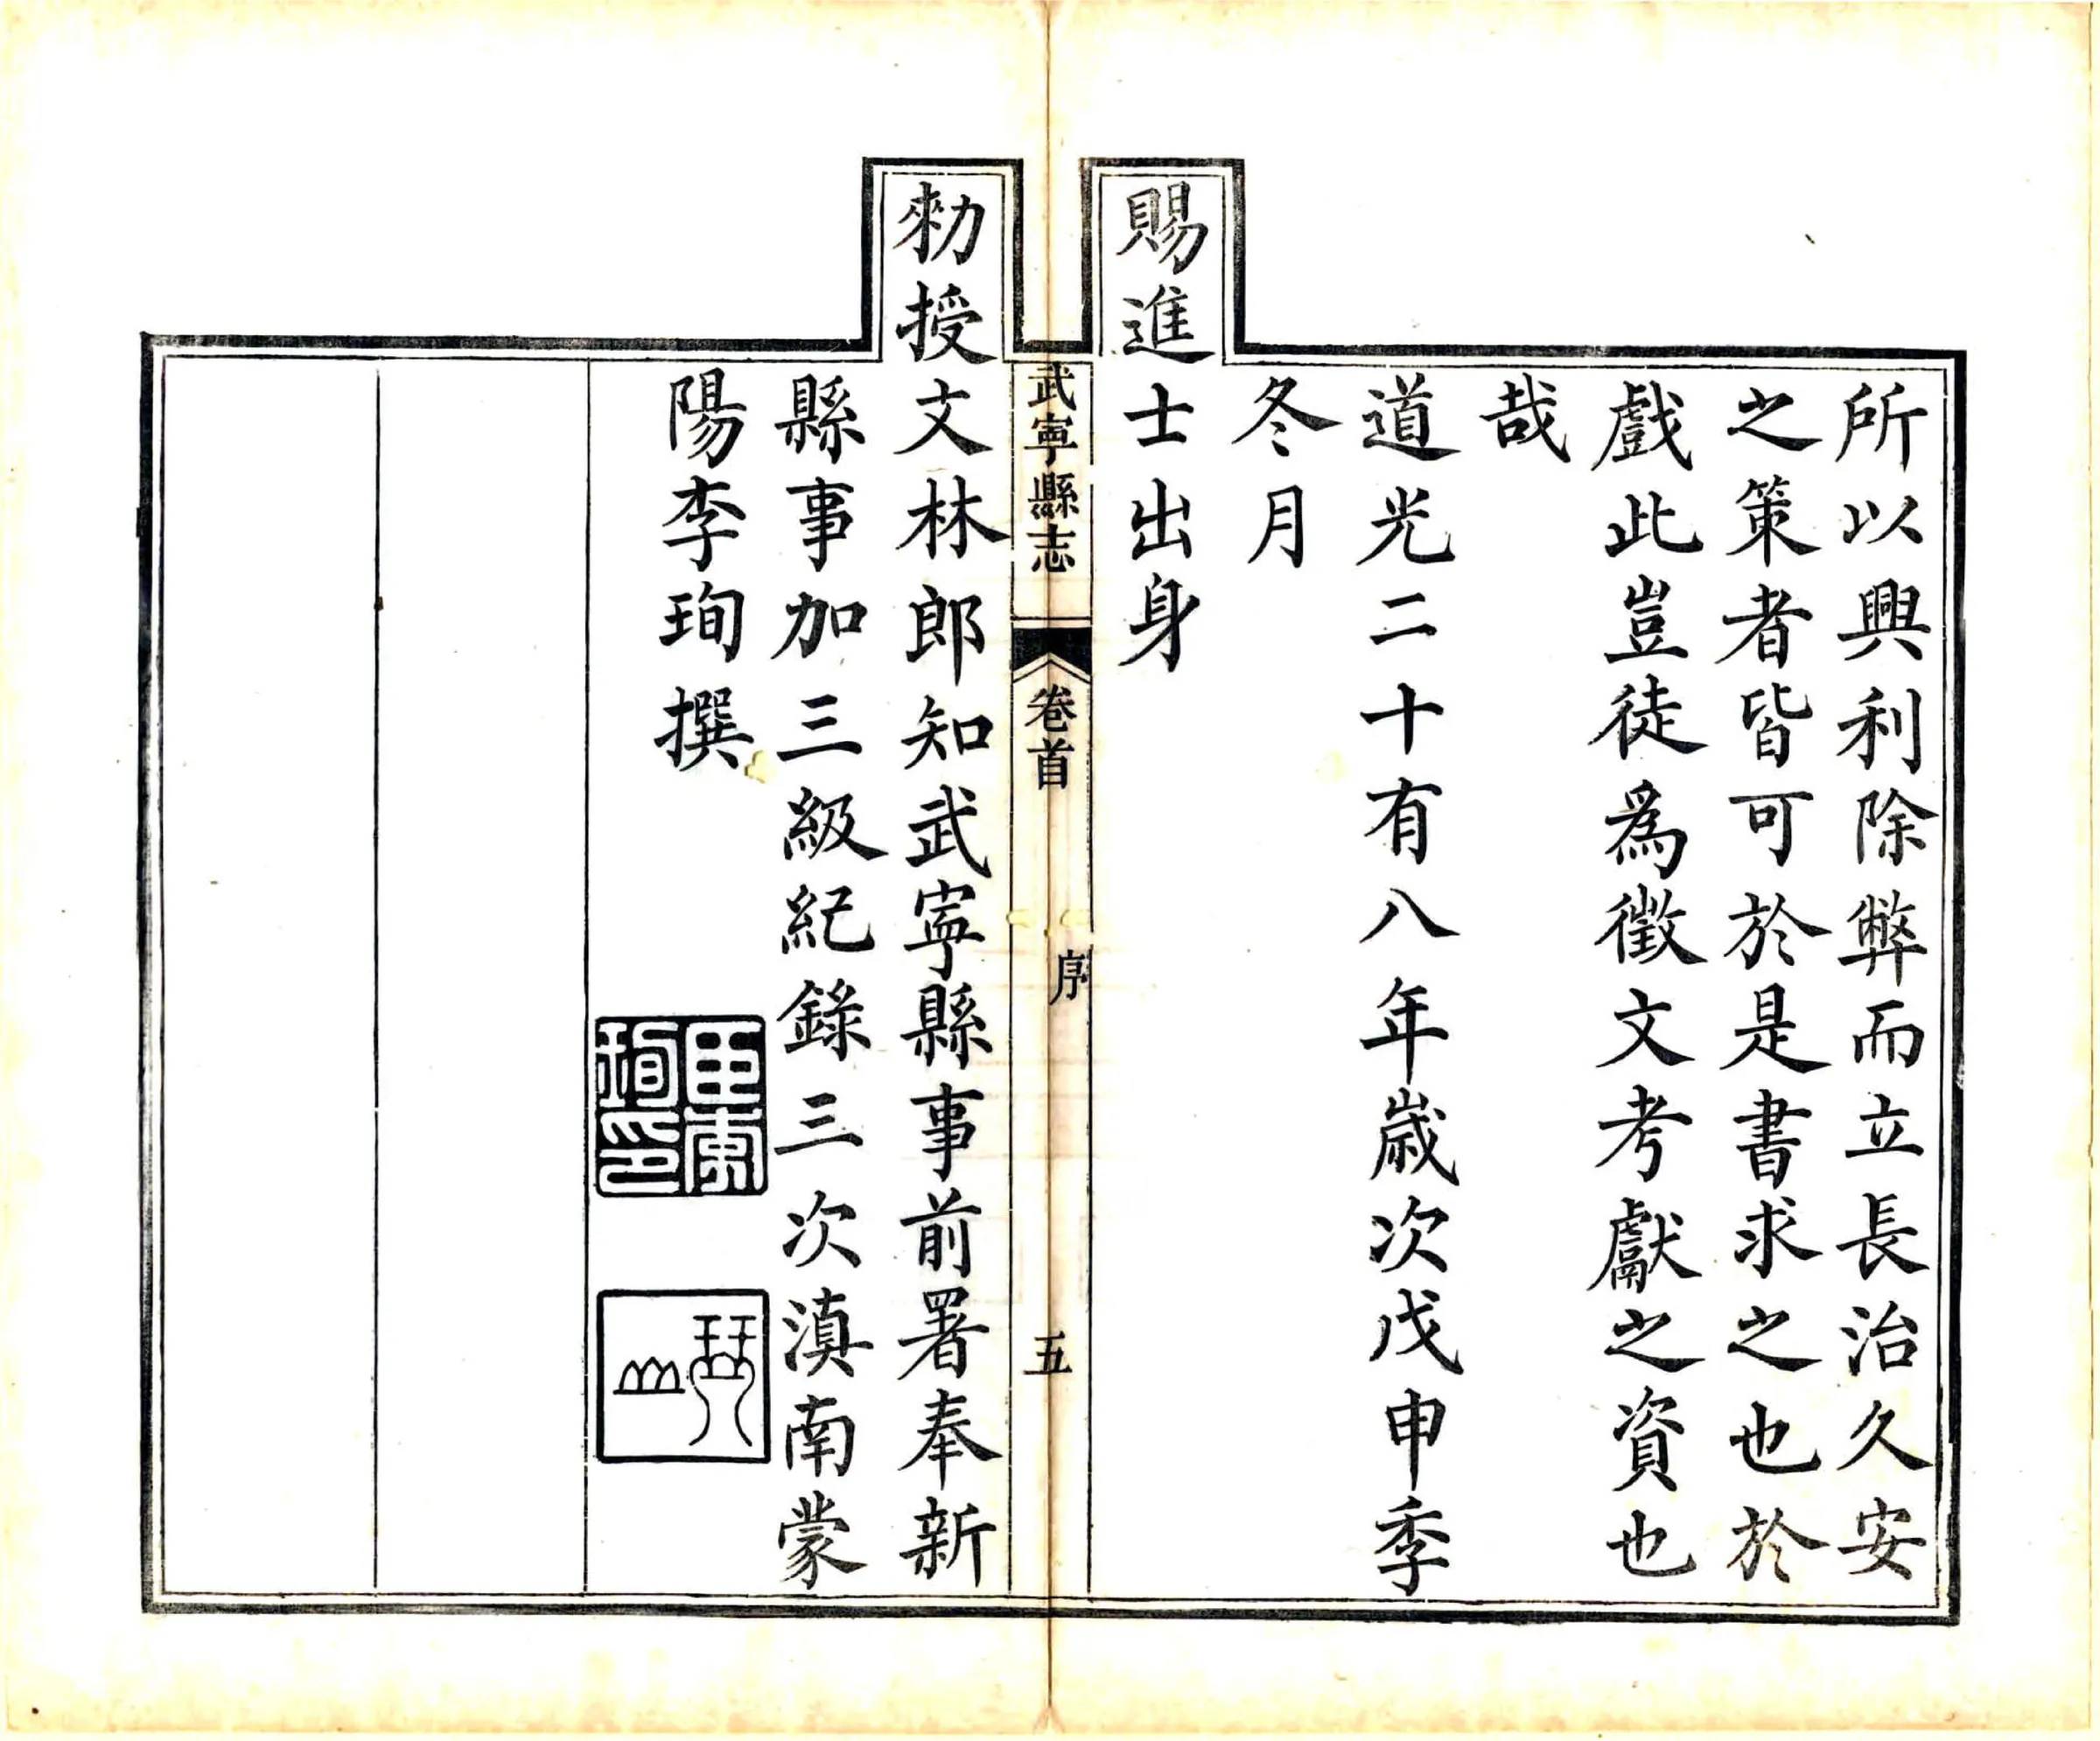 所以興利除弊而立長治久安
之策者皆可於是書求之也於
戲此豈徒爲徵文考獻之資也
哉
道光二十有八年歲次戊申季
冬月
賜進士出身
武寕縣志
卷首
序
五
勑授文林郎知武寕縣事前署奉新
縣事加三級紀錄三次滇南蒙
陽李珣撰
珣印
琴山